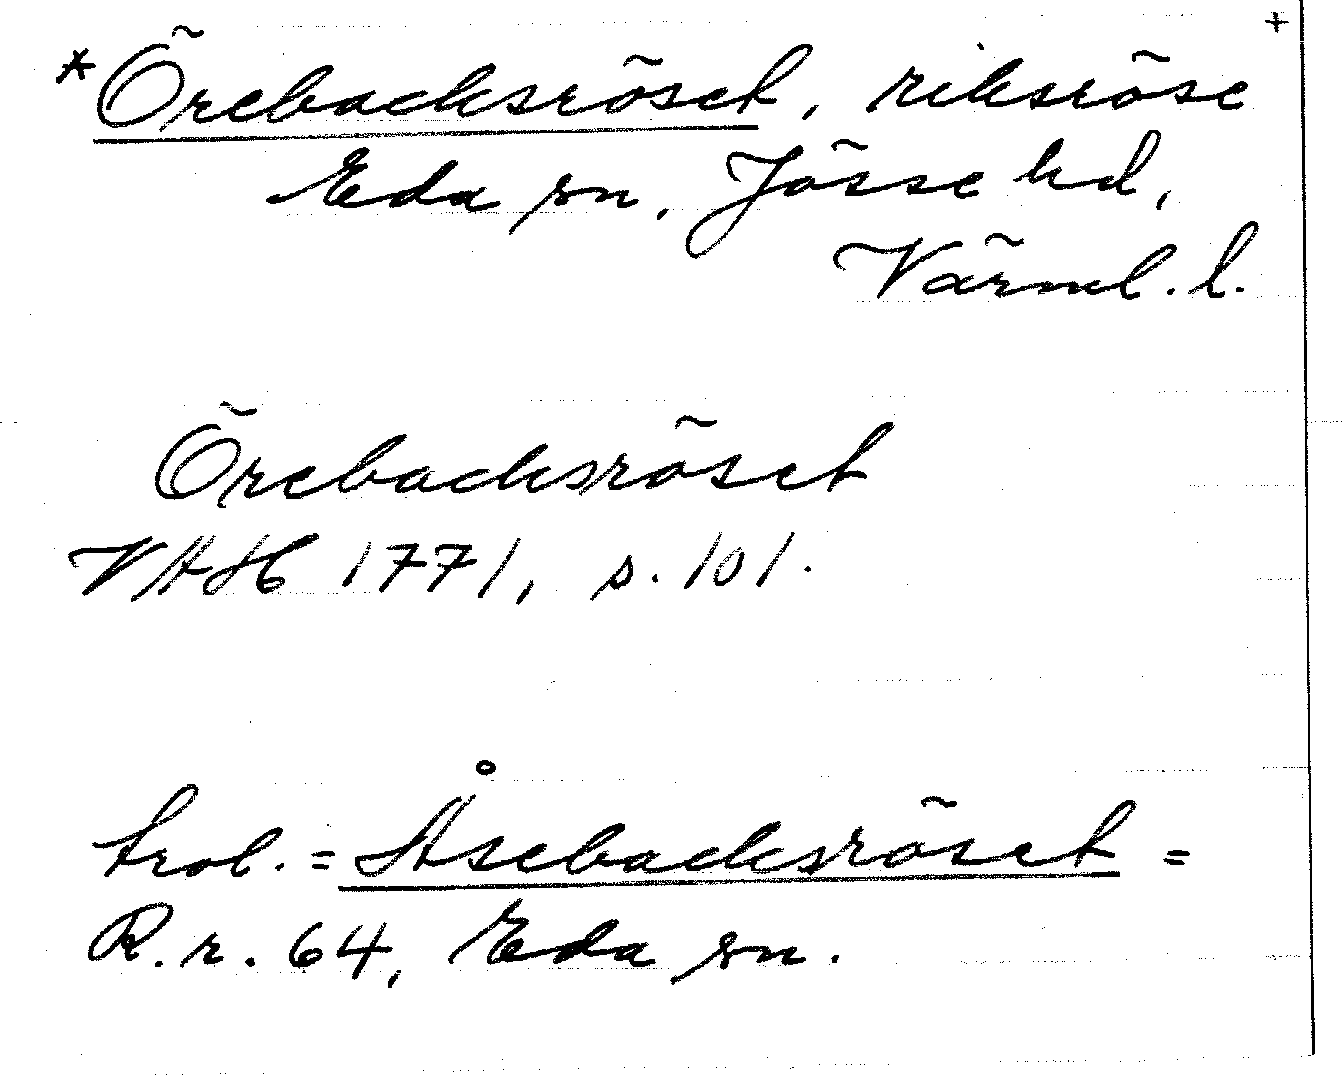 +
*Örebacksröset, riksröse
Eda sn, Jösse hd,
Värml. l.
Örebacksröset
VAH 1771, s. 101.
trol. = Åsebacksröset =
R.r. 64, Eda sn.